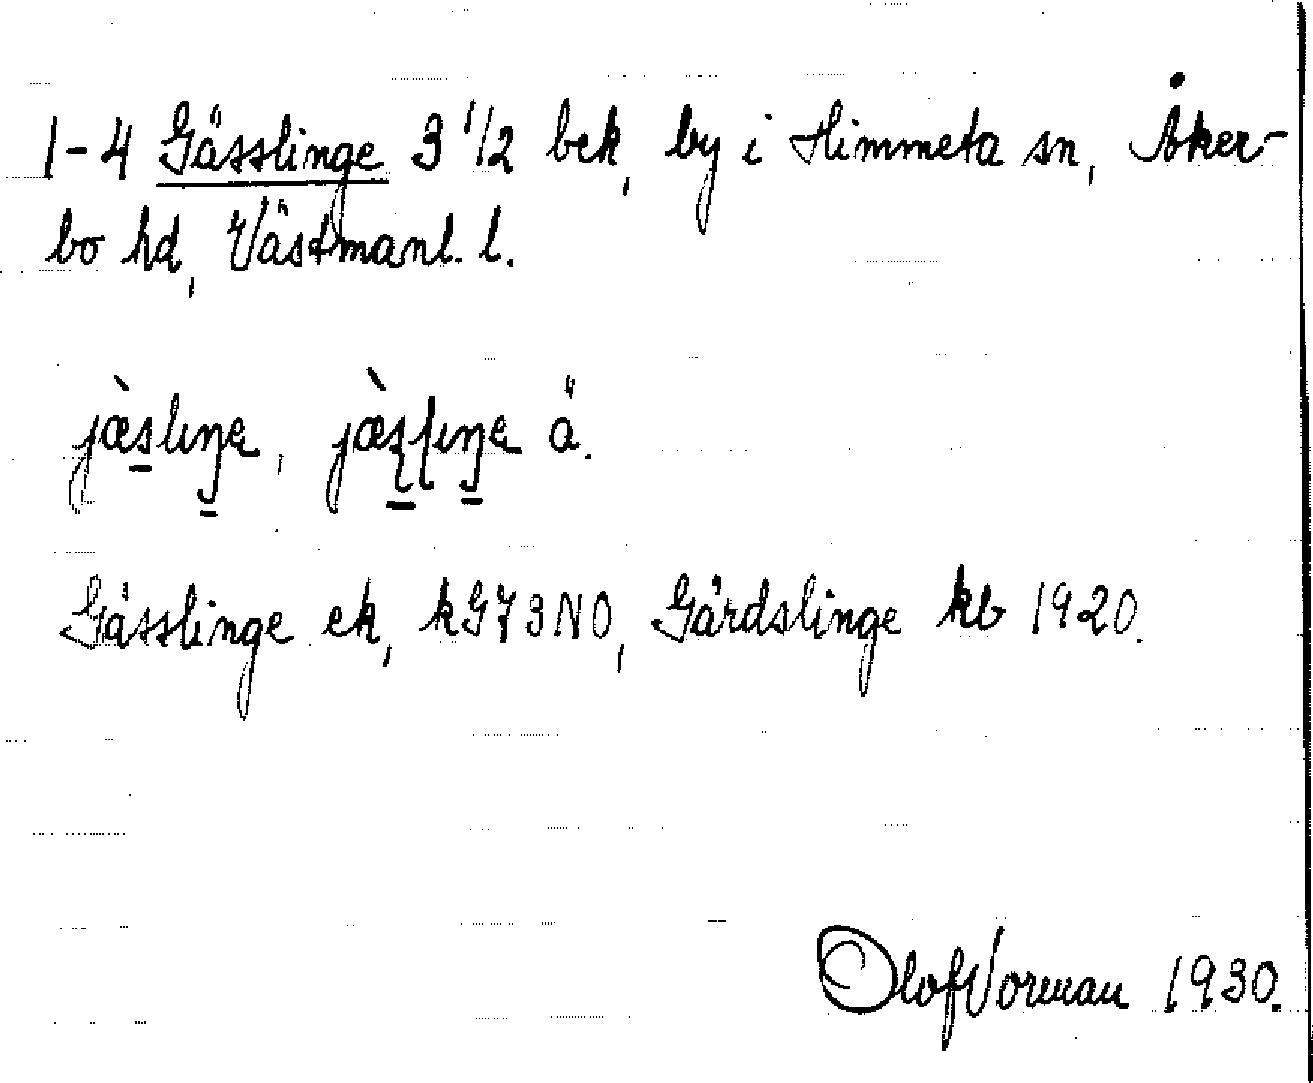 1-4 Gässlinge 3 1/2 bek, by i Himmeta sn, Åker-
bo hd, Västmanl. l.
jæ̀slıŋe, jæ̀ʂɭıŋe ä.
Gässlinge ek, kG73NO, Gärdslinge kb 1920.
Olof Vorman 1930.